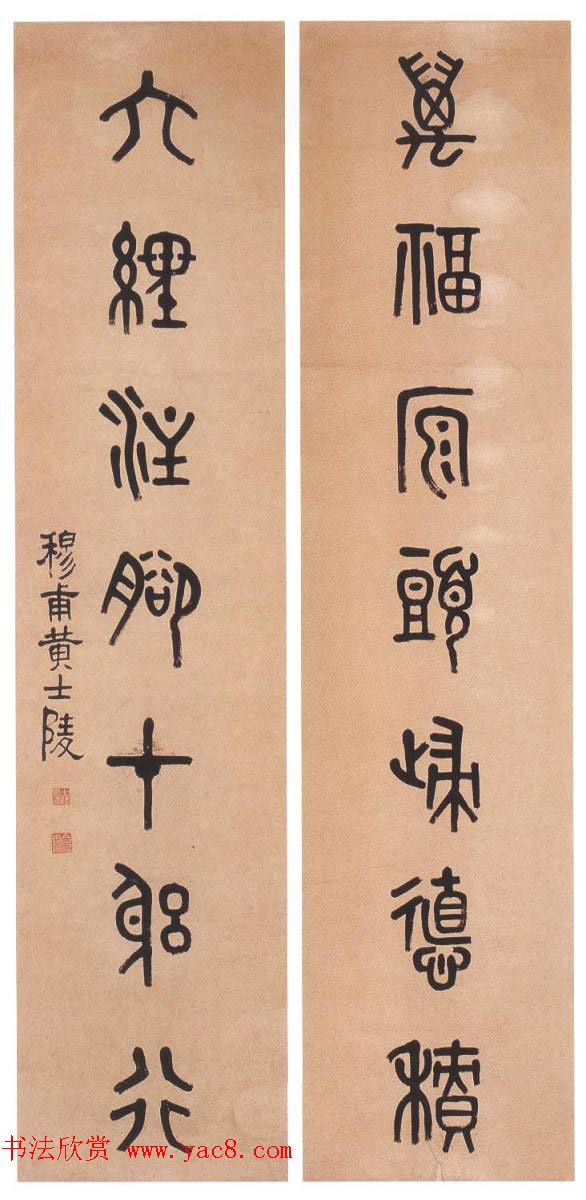 萬福原頭歸德積
六經注腳在躳行
穆甫黄士陵
书法欣赏 www.yac8.com